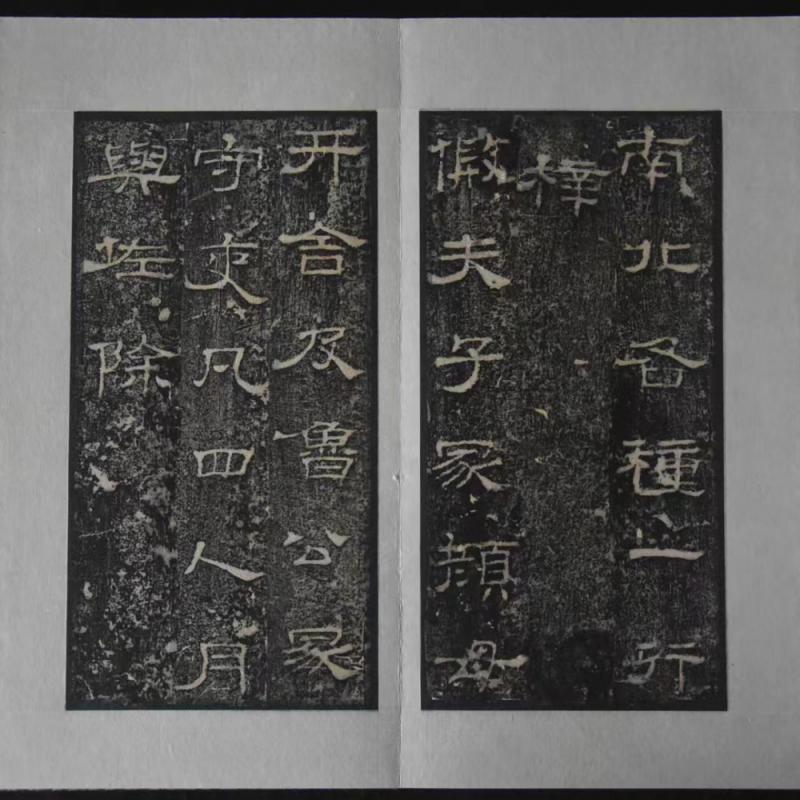 南北各種一行
梓
假夫子冢顏母
开舍及魯公冢
守吏凡四人月
與佐除